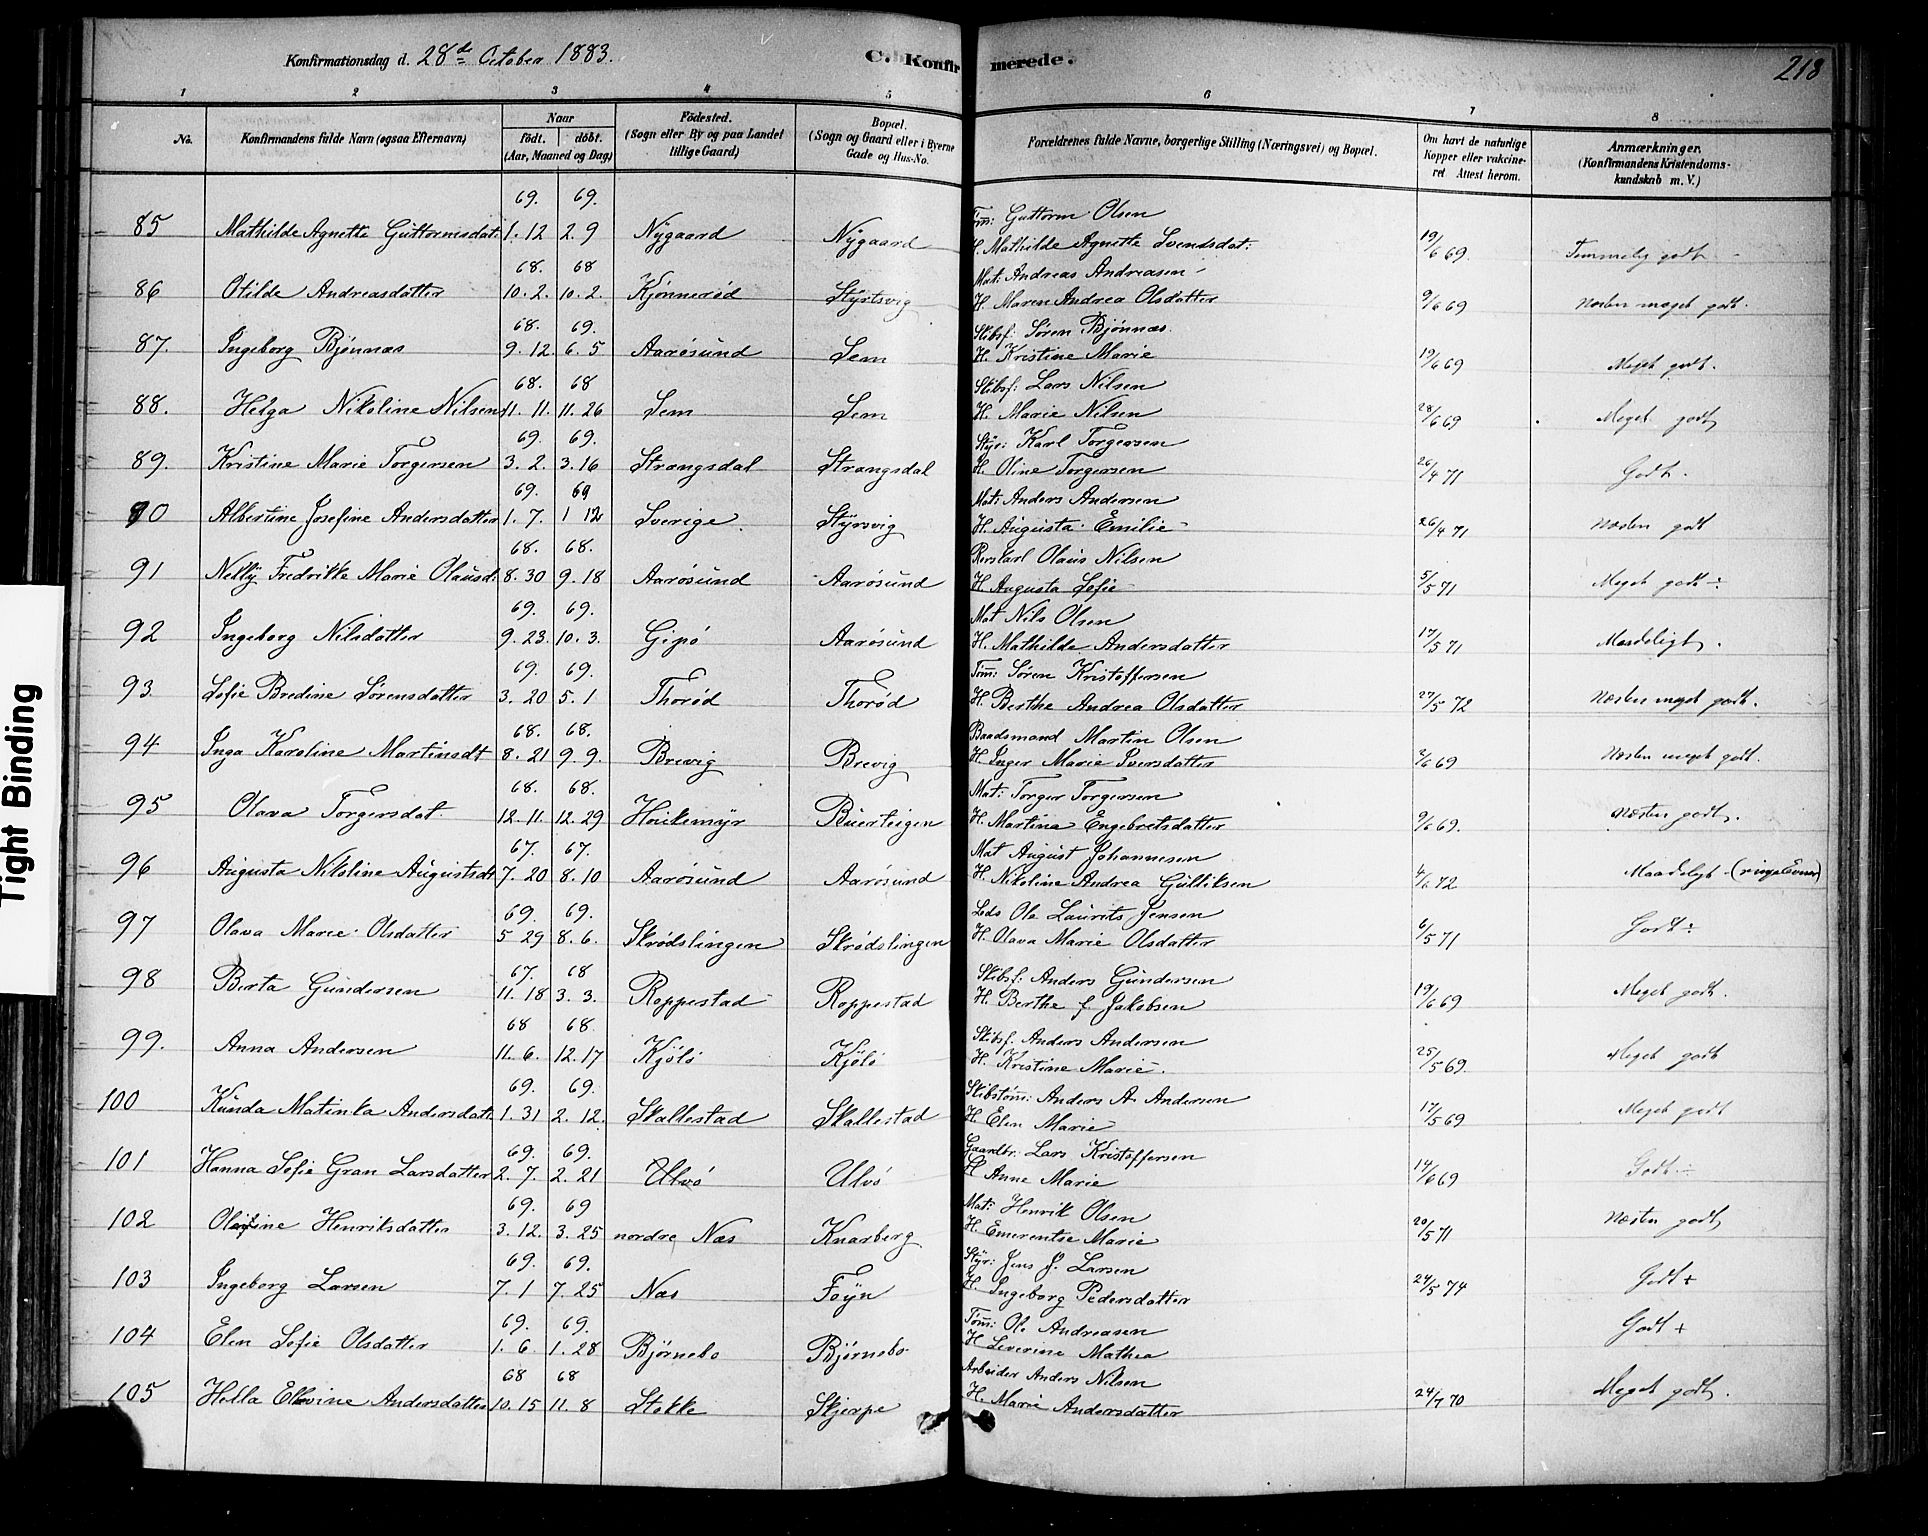 Konfirmationsdag d. 28de October 1883. C. Konfirmerede. 218
1 2 3 4 5 6 7 8
No. Konfirmandens fulde Navn (ogsaa Efternavn) Naar født. døbt. (Aar, Maaned og Dag) Födested. (Sogn eller By og paa Landet tillige Gaard) Bopæl. (Sogn og Gaard eller i Byerne Gade og Hus-No. Forældrenes fulde Navne, borgerlige Stilling (Næringsvei) og Bopæl. Om havt de naturlige Kopper eller vakcineret Attest herom. Anmærkninger. (Konfirmandens Kristendomskundskab m. V.)
69. 69. Tøm: Guttorm Olsen
85 Mathilde Agnette Guttormsdat. 1. 12 2. 9 Nygaard Nygaard H. Mathilde Agnette Svendsdat: 19/6 69. Temmelig godt
68. 68 Mat: Andreas Andreasen
86 Otilde Andreasdatter 10. 2. 10. 2. Kjønnerød Styrtsvig H. Maren Andrea Olsdatter 9/6 69 Næsten meget godt.
68. 69. Skibsf: Søren Bjønnæs.
87. Ingeborg Bjønnæs 9. 12. 6. 5 Aarøsund Sem H. Kristine Marie 19/6 69 Meget godt.
68. 68 Skibsf: Lars Nilsen
88. Helga Nikoline Nilsen 11. 11. 11. 26 Sem Sem H. Marie Nilsen 28/6 69 Meget godt
69. 69. Styr: Karl Torgersen
89. Kristine Marie Torgersen 3. 2. 3. 16 Strangsdal Strangsdal H. Oline Torgersen 26/4 71 Godt.
69. 69 Mat: Anders Andersen
90 Albertine Josefine Andersdatter 1. 7. 1 12 Sverige Styrsvig H. Augusta Emilie 26/4 71 Næsten godt
68. 68. Olaus Nilsen
91 Nelly Fredrikke Marie Olausd: 8. 30 9. 18 Aarøsund Aarøsund H. Augusta Sofie 5/5 71 Meget godt ÷
69. 69. Mat Nils Olsen
92 Ingeborg Nilsdatter 9. 23. 10. 3. Gipø Aarøsund H. Mathilde Andersdatter 17/5 71 Maadeligt.
69. 69. Tøm: Søren Kristoffersen
93 Sofie Bredine Sørensdatter 3. 20 5. 1 Thorød Thorød H. Berthe Andrea Olsdatter 27/5 72 Næsten meget godt.
68. 68. Baadsmand Martin Olsen
94 Inga Karoline Martinsdt 8. 21 9. 9. Brevig Brevig H. Inger Marie Iversdatter 2/6 69 Næsten meget godt.
68. 68. Mat: Torger Torgersen
95 Olava Torgersdat. 12. 11. 12. 29 Buerteigen H. Martina Engebretsdatter 9/6 69. Næsten godt.
67. 67. Mat August Johannesen
96 Augusta Nikoline Augustsdt 7. 20 8. 10 Aarøsund Aarøsund H. Nikoline Andrea Gulliksen 4/6 72 Maadeligt (ringe Evner)
69. 69. Lods Ole Laurits Jensen
97 Olava Marie Olsdatter 5 29 8. 6. Skrødslingen Skrødslingen H. Olava Marie Olsdatter 6/5 71 Godt ÷
67. 68 Skibsf: Anders Gundersen
98 Berta Gundersen 11. 18 3. 3. Roppestad Roppestad H. Berthe f. Jakobsen 19/6 69 Meget godt.
68 68. Skibsf. Anders Andersen
99. Anna Andersen 11. 6. 12. 17 Kjølø Kjølø H. Kristine Marie. 25/5 69. Meget godt
69. 69. Skibstøm: Anders A. Andersen
100 Kunda Matinka Andersdatt. 1. 31 2. 12. Skallestad Skallestad H. Elen Marie 17/5 69 Meget godt
69. 69. Gaardbr: Lars Kristoffersen
101 Hanna Sofie Gran Larsdatter 2. 7. 2. 21 Ulvø Ulvø H Anne Marie 14/6 69 Godt ÷
69. 69 Mat: Henrik Olsen
102 Olafine Henriksdatter 3. 12. 3. 25 nordre Næs Knarberg H. Emerentse Marie 20/5 71 Næsten godt
69. 69. Styr: Jens J. Larsen
103 Ingeborg Larsen 7. 1 7. 25 Næs Föyn H. Ingeborg Pedersdatter 24/5 74 Godt +
69. 69. Tøm: Ole Andreasen
104 Elen Sofie Olsdatter 1. 6. 1. 28 Bjørnebo Bjørnebo H Severine Mathea Godt +
68 68 Arbeider Anders Nilsen
105 Hella Elevine Andersdatter 10. 15 11. 8 Stokke Skjerpe H. Marie Andersdatter 24/7 70 Meget godt.
Tight Binding